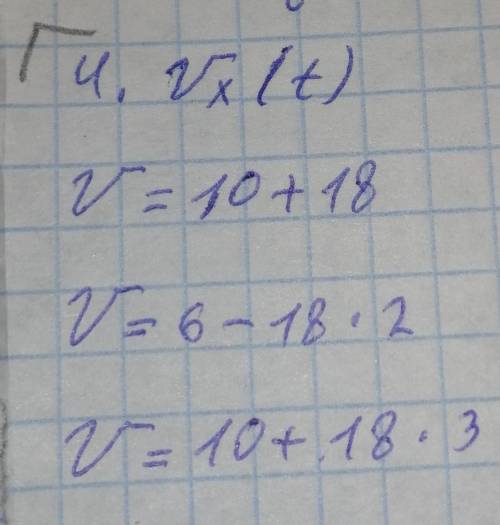 4. Vx (t)
V = 10 + 18
V = 6 - 18 · 2
V = 10 + 18 · 3